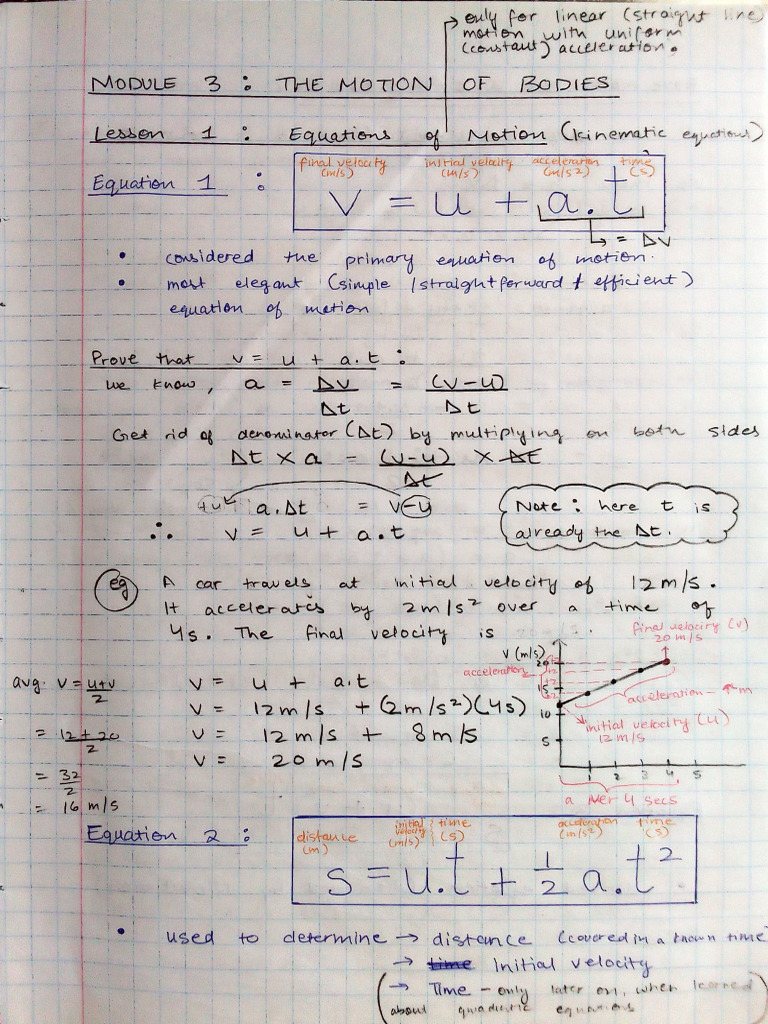 only for linear (straight line)
motion with uniform
(constant) acceleration.
MODULE 3 : THE MOTION OF BODIES
Lesson 1 : Equations of Motion (kinematic equations)
Equation 1 :
final velocity (m/s) initial velocity (m/s) acceleration (m/s2) time (s)
v = u + a.t
↳ = Δv
• considered the primary equation of motion.
• most elegant (simple / straightforward & efficient)
equation of motion
Prove that v = u + a.t :
we know, a = Δv/Δt = (v-u)/Δt
Get rid of denominator (Δt) by multiplying on both sides
Δt x a = (v-u)/Δt x Δt
+u a.Δt = v-u
∴ v = u + a.t
Note : here t is
already the Δt.
eg A car travels at initial velocity of 12m/s.
It accelerates by 2m/s² over a time of
4s. The final velocity is
final velocity (v)
20 m/s
v (m/s)
20
15
10
5
1 2 3 4 5
acceleration
acceleration
m
initial velocity (u)
12 m/s
a per 4 secs
avg. v = u+v/2
= 12+20/2
= 32/2
= 16 m/s
v = u + a.t
v = 12m/s + (2m/s²)(4s)
v = 12m/s + 8m/s
v = 20m/s
Equation 2 :
distance (m) initial velocity (m/s) time (s) acceleration (m/s²) time (s)
s = u.t + 1/2 a.t²
• used to determine → distance (covered in a known time
→ time Initial velocity
(→ Time - only later on, when learned
about quadratic equations